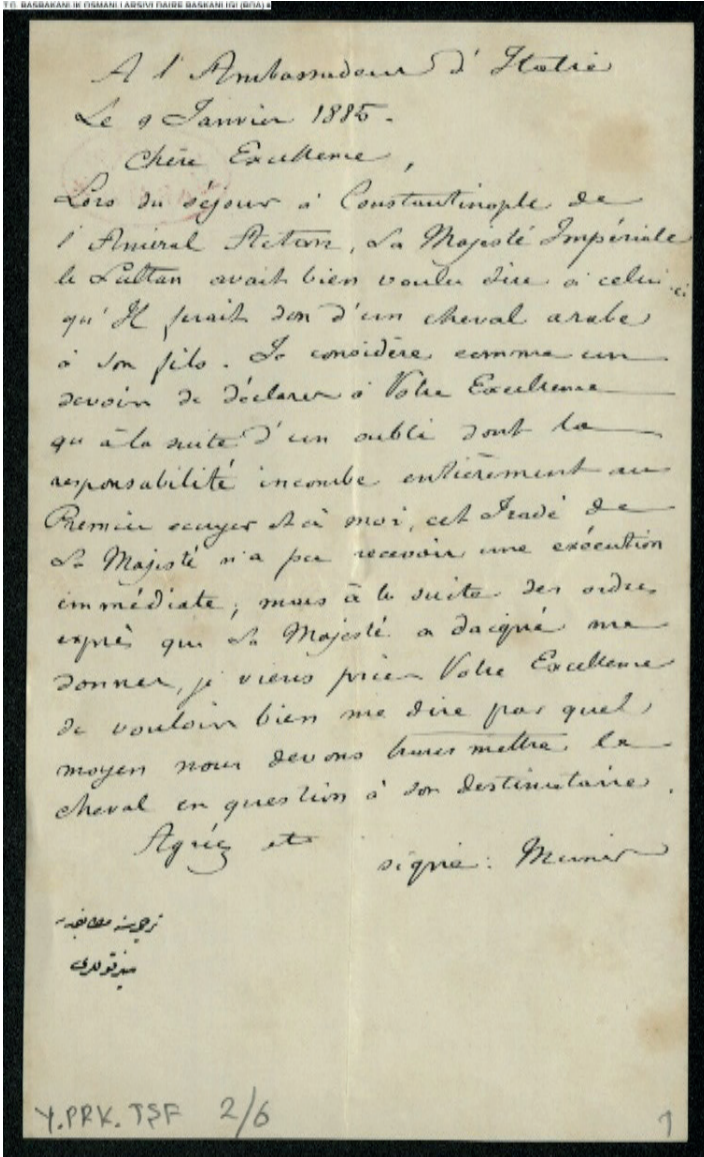 T.C. BAŞBAKANLIK OSMANLI ARŞİVİ DAİRE BAŞKANLIĞI (BOA)
A l'Ambassadeur d'Italie
Le 9 Janvier 1885.
Chère Excellence,
Lors du séjour à Constantinople de
l'Amiral Acton, Sa Majesté Impériale
le Sultan avait bien voulu dire à celui-ci
qu'Il ferait don d'un cheval arabe
à son fils. Je considère comme un
devoir de déclarer à Votre Excellence
qu'à la suite d'un oubli dont la
responsabilité incombe entièrement au
Premier écuyer et à moi, cet Iradé de
Sa Majesté n'a pu recevoir une exécution
immédiate; mais à la suite des ordres
exprès que Sa Majesté a daigné me
donner, je viens prier Votre Excellence
de vouloir bien me dire par quel
moyen nous devons transmettre le
cheval en question à son destinataire.
Agréez etc
signé: Munir
Y.PRK.TŞF 2/6
1